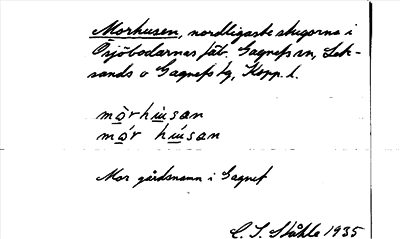 Morhusen, nordligaste stugorna i
Ösjöbodarnas fäb. Gagnefs sn, Lek-
sands o Gagnefs tg, Kopp. l.
mòrhusan
mór húsan
Mor gårdsnamn i Gagnef
C. I. Ståhle 1935